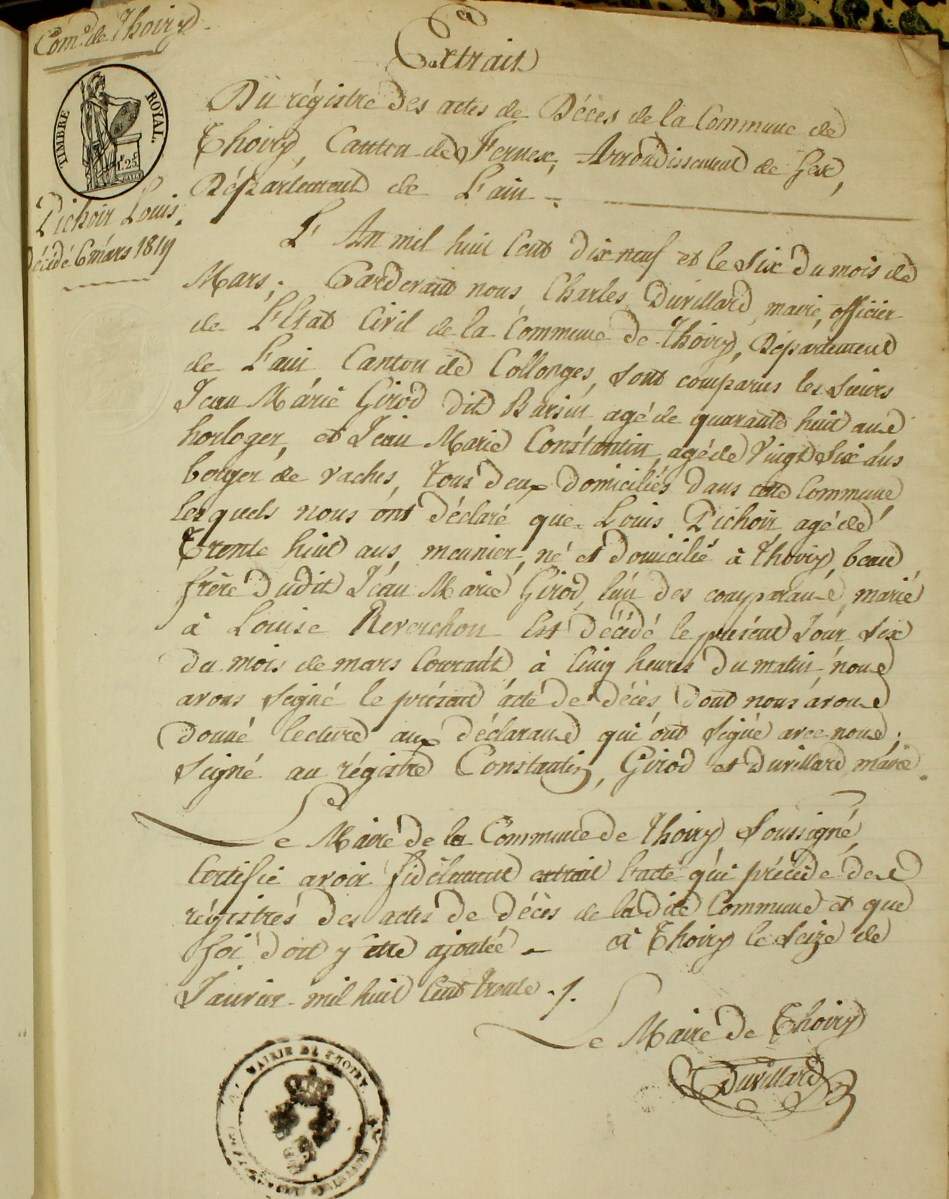 Com.ne de Thoiry
Extrait
TIMBRE ROYAL.
1f. 25c.
Du régistre des actes de Décès de la Commune de
Thoiry, Canton de Fernex, Arrondissement de Gex,
Département de L'ain.
Pichoir Louis.
décédé 6 mars 1819
L'An mil huit Cent dix neuf et le Six du mois de
Mars, Pardevant nous, Charles Duvillard, maire, officier
de L'Etat Civil de la Commune de Thoiry, Département
de L'ain Canton de Collonges, Sont comparus les Sieurs
Jean Marie Girod dit agé de quarante huit ans
horloger, et Jean Marie Constantin, agé de Vingt Six ans
berger de vaches, tous deux domiciliés dans cette Commune
lesquels nous ont déclaré que Louis Pichoir agé de
Trente huit ans, meunier, né et domicilié à Thoiry, beau
frère dudit Jean Marie Girod, l'un des comparans, marié
à Louise Reverchon Est décédé le présent Jour Six
du mois de mars Courant à Cinq heures du matin, nous
avons Signé le présent acte de décès dont nous avons
donné lecture aux déclarans qui ont Signé avec nous.
Signé au régistre Constantin, Girod et Duvillard, maire.
Le Maire de la Commune de Thoiry Soussigné,
Certifie avoir fidèlement extrait l'acte qui précède des
régistres des actes de décès de la dite Commune et que
foi doit y être ajoutée - à Thoiry le Seize de
Janvier mil huit Cent trente ./.
Le Maire de Thoiry
Duvillard
MAIRIE DE THOIRY